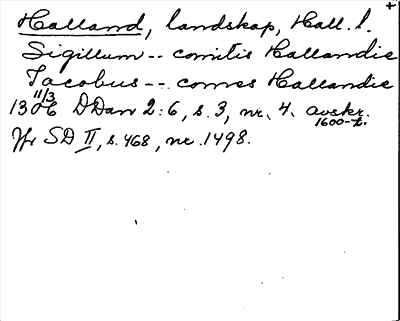 +
Halland, landskap, Hall. l.
Sigillum -- comitis Hallandie
Jacobus -- comes Hallandie
1306 11/3 DDan 2:6, s. 3, nr. 4. avskr. 1600-t.
Jfr SD II, s. 468, nr. 1498.